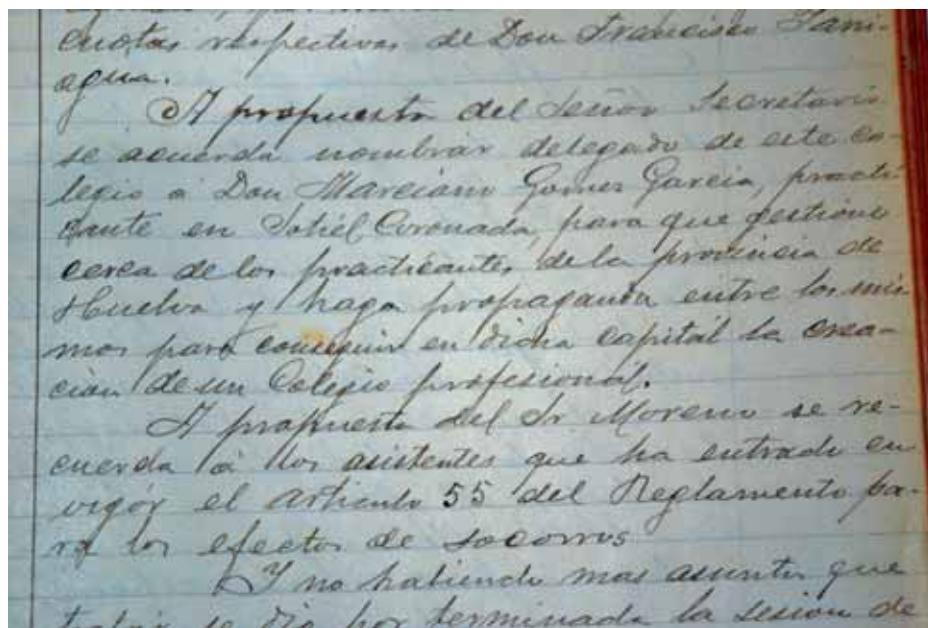 cuotas respectivas de Don Francisco Pani-
agua.
A propuesta del Señor Secretario
se acuerda nombrar delegado de este Co-
legio á Don Marciano Gomez Garcia, practi-
cante en Sotiél Coronada, para que gestione
cerca de los practicantes de la provincia de
Huelva y haga propaganda entre los mis-
mos para conseguir en dicha capital la crea-
cion de un Colegio profesional.
A propuesta del Sr. Moreno se re-
cuerda á los asistentes que ha entrado en
vigór el articulo 55 del Reglamento pa-
ra los efectos de socorros
Y no habiendo mas asuntos que
tratar se dió por terminada la sesion de